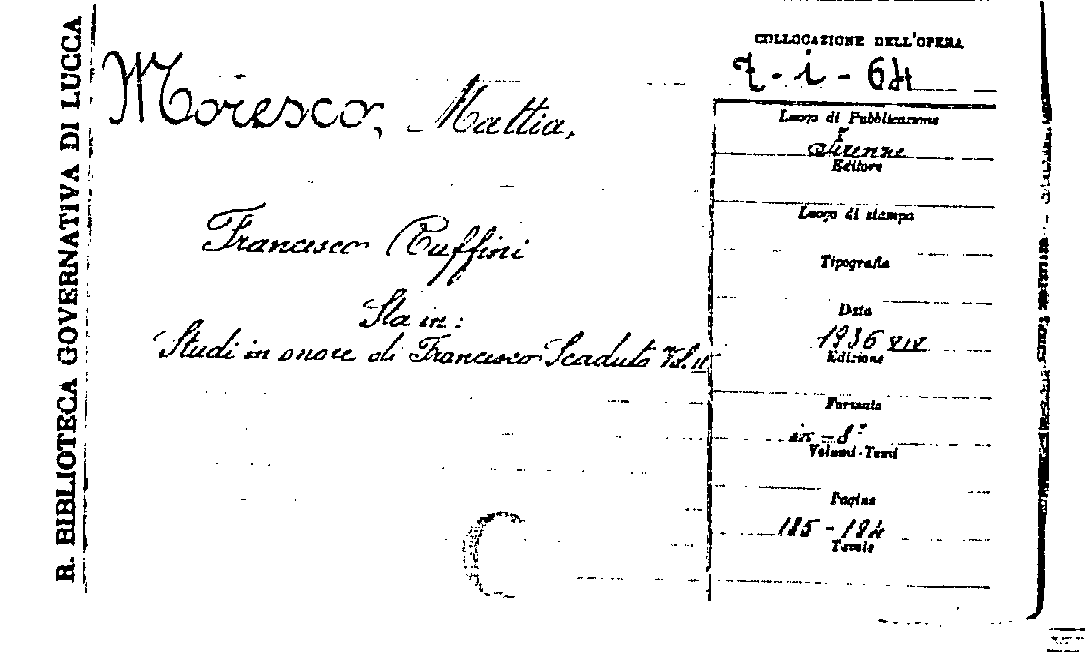 R. BIBLIOTECA GOVERNATIVA DI LUCCA
Moresco, Mattia,
Francesco Ruffini
Sta in:
Studi in onore di Francesco Scaduto Vol. II
COLLOCAZIONE DELL'OPERA
7-i-64
Luogo di Pubblicazione
Firenze
Editore
Luogo di stampa
Tipografia
Data
1936 XIV
Edizione
Formato
in-8°
Volumi-Tomi
Pagine
185-194
Tavole